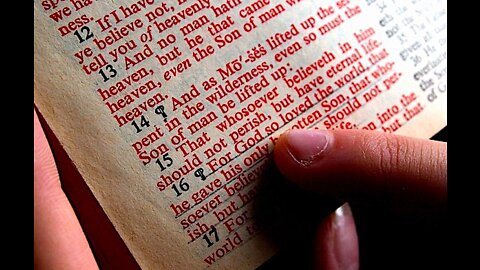 we ha
ness.
12 If I have
ye believe not,
tell you of heavenly
13 And no man hath
heaven, but he that came
heaven, even the Son of man
heaven.
14 ¶ And as Mō´-ṣĕṣ lifted up the ser
pent in the wilderness, even so must the
Son of man be lifted up:
15 That whosoever believeth in him
should not perish, but have eternal life.
16 ¶ For God so loved the world, that
he gave his only gotten Son, that who-
soever believe should not per-
ish, but into the
17 For
world